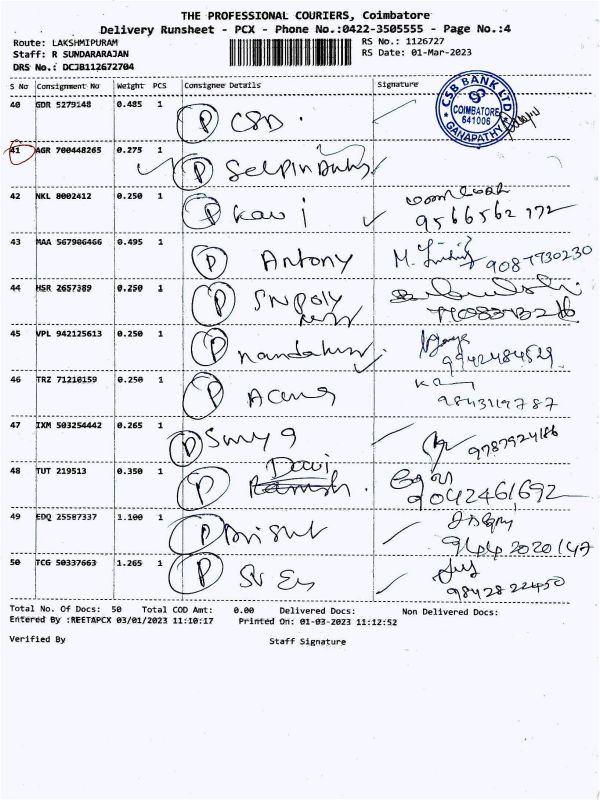 THE PROFESSIONAL COURIERS, Coimbatore
Delivery Runsheet - PCX - Phone No.:0422-3505555 - Page No.:4
Route: LAKSHMIPURAM RS No.: 1126727
Staff: R SUNDARARAJAN RS Date: 01-Mar-2023
DRS No.: DCJB112672704
S No Consignment No Weight PCS Consignee Details Signature
40 GDR 5279148 0.485 1 P CSB
CSB BANK LTD COIMBATORE 641006 GANAPATHY
41 AGR 700448265 0.275 1 P
42 NKL 8002412 0.250 1 P Kavi 9566562772
43 MAA 567906466 0.495 1 P Antony M. 9087730230
44 HSR 2657389 0.250 1 P SN Poly
45 VPL 942125613 0.250 1 P 9942484529
46 TRZ 71210159 0.250 1 P 9843119787
47 IXM 503254442 0.265 1 P 9787924186
48 TUT 219513 0.350 1 P Devi 9042461692
49 EDQ 25587337 1.100 1 P 9442020147
50 TCG 50337663 1.265 1 P 9842822450
Total No. Of Docs: 50 Total COD Amt: 0.00 Delivered Docs: Non Delivered Docs:
Entered By :REETAPCX 03/01/2023 11:10:17 Printed On: 01-03-2023 11:12:52
Verified By Staff Signature